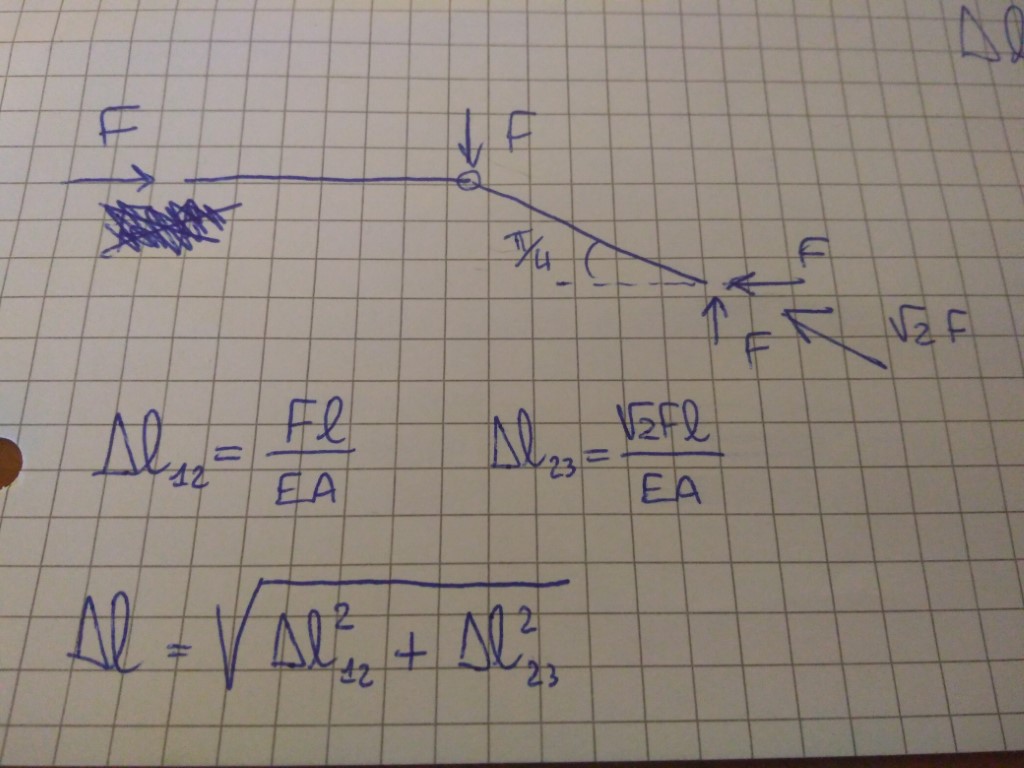 Δl
F
F
π/4
F
F
√2 F
Δl₁₂ = Fl/EA
Δl₂₃ = √2Fl/EA
Δl = √(Δl₁₂² + Δl₂₃²)